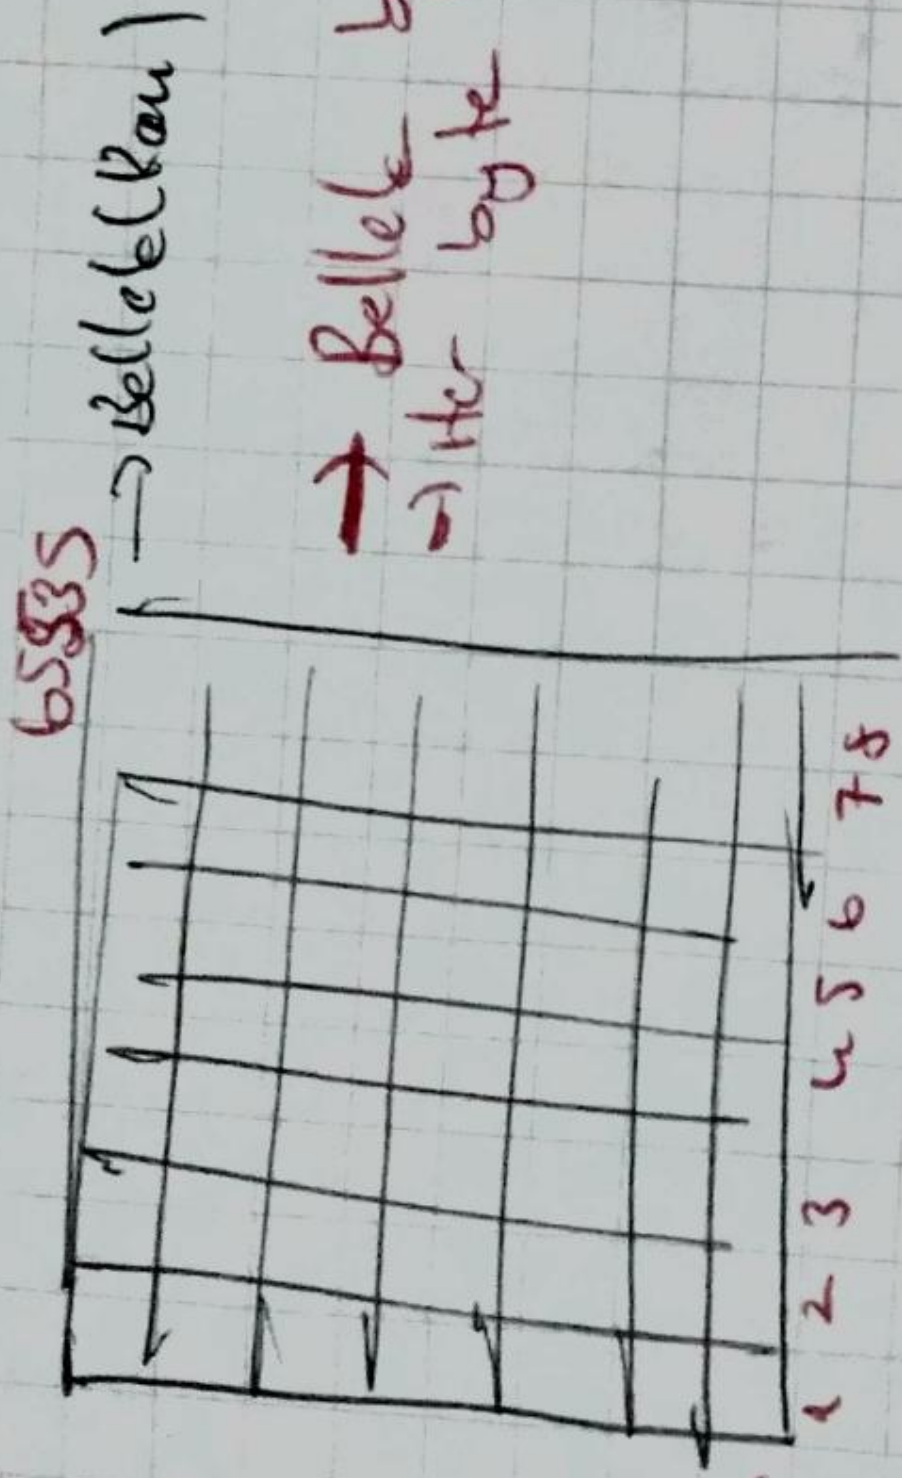 65535
→ Bellek (Ram)
→ Bellek b
→ Her byte
1 2 3 4 5 6 7 8